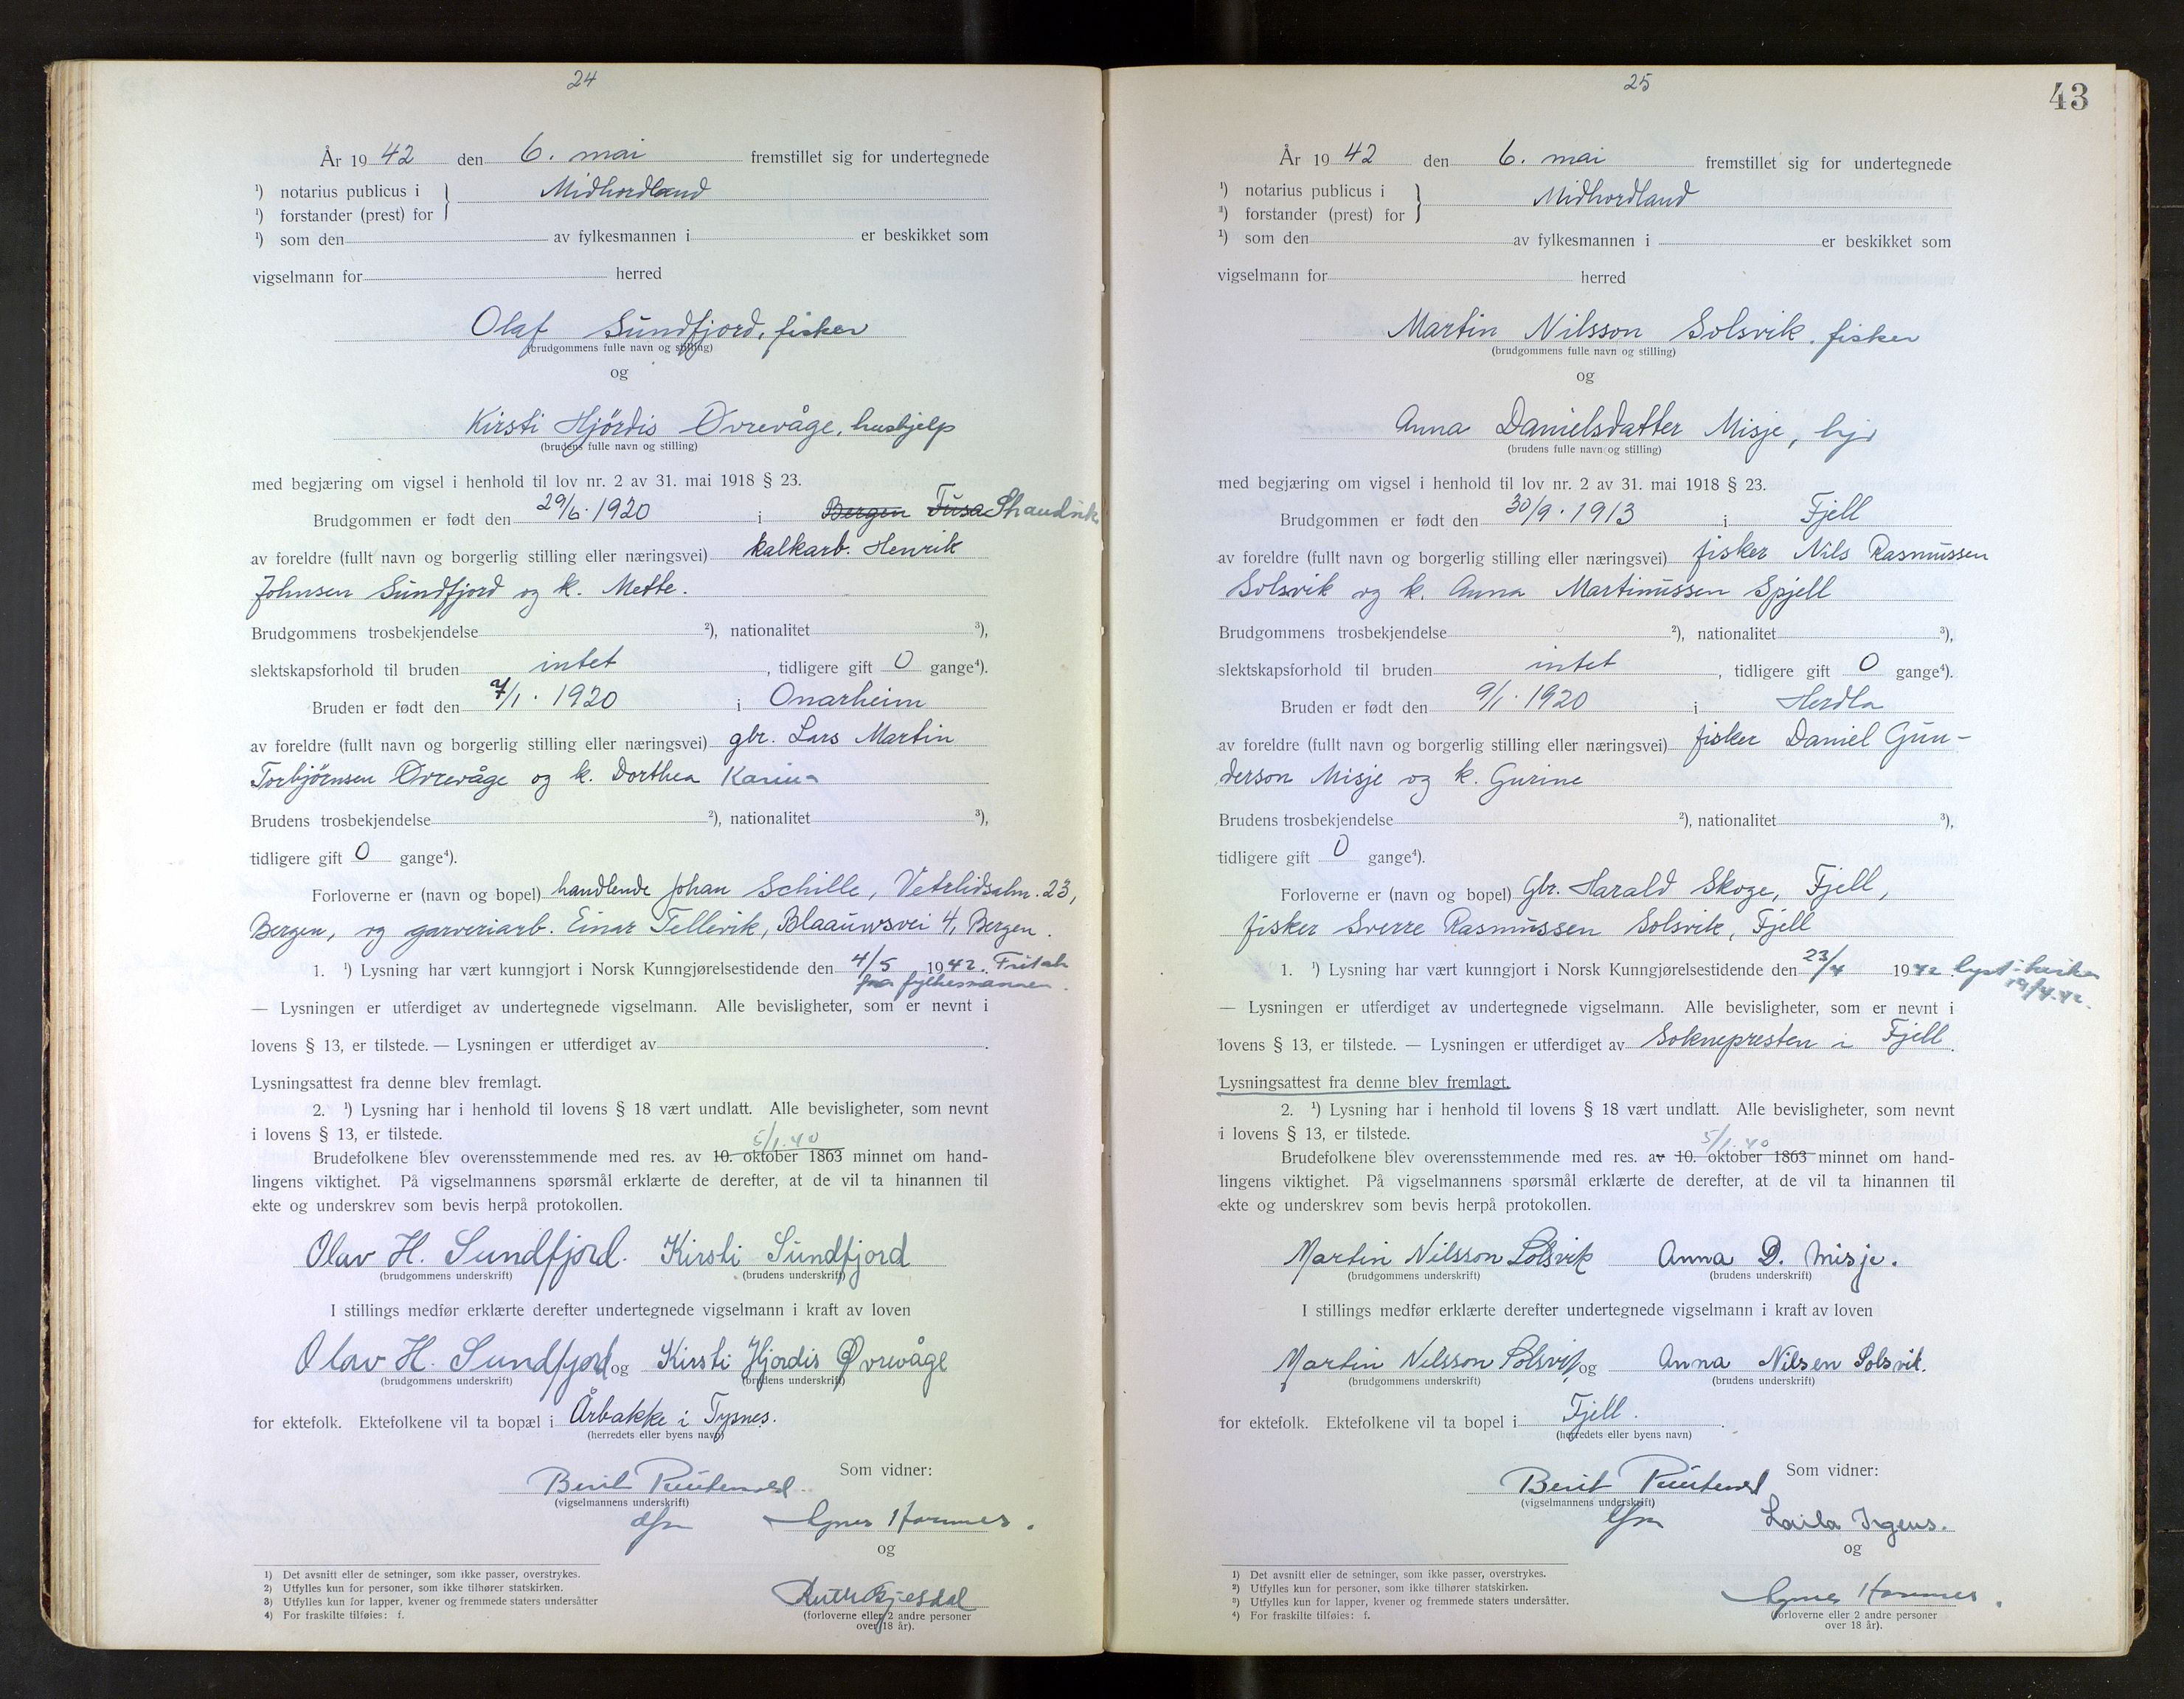 24
År 19 42 den 6. mai fremstillet sig for undertegnede
¹) notarius publicus i } Midhordland
¹) forstander (prest) for
¹) som den av fylkesmannen i er beskikket som
vigselmann for herred
Olaf Sundfjord, fisker
(brudgommens fulle navn og stilling)
og
Kirsti Hjördis Øvrevåge, hushjelp
(brudens fulle navn og stilling)
med begjæring om vigsel i henhold til lov nr. 2 av 31. mai 1918 § 23.
Brudgommen er født den 29/6. 1920 i Bergen Fusa Strandvik
av foreldre (fullt navn og borgerlig stilling eller næringsvei) kalkarb. Henrik
Johnsen Sundfjord og k. Mette.
Brudgommens trosbekjendelse ²), nationalitet ³),
slektskapsforhold til bruden intet, tidligere gift 0 gange⁴).
Bruden er født den 7/1. 1920 i Onarheim
av foreldre (fullt navn og borgerlig stilling eller næringsvei) gbr. Lars Martin
Torbjørnsen Øvrevåge og k. Dorthea Karina
Brudens trosbekjendelse ²), nationalitet ³),
tidligere gift 0 gange⁴).
Forloverne er (navn og bopel) handlende Johan Schille, Vetrlidsalm. 23,
Bergen, og garveriarb. Einar Tellevik, Blaauwsvei 4, Bergen.
1. ¹) Lysning har vært kunngjort i Norsk Kunngjørelsestidende den 4/5 1942. Fritak
fra fylkesmannen.
— Lysningen er utferdiget av undertegnede vigselmann. Alle bevisligheter, som er nevnt i
lovens § 13, er tilstede. — Lysningen er utferdiget av .
Lysningsattest fra denne blev fremlagt.
2. ¹) Lysning har i henhold til lovens § 18 vært undlatt. Alle bevisligheter, som nevnt
i lovens § 13, er tilstede.
5/1.40
Brudefolkene blev overensstemmende med res. av 10. oktober 1863 minnet om hand-
lingens viktighet. På vigselmannens spørsmål erklærte de derefter, at de vil ta hinannen til
ekte og underskrev som bevis herpå protokollen.
Olav H. Sundfjord. Kirsti Sundfjord
(brudgommens underskrift) (brudens underskrift)
I stillings medfør erklærte derefter undertegnede vigselmann i kraft av loven
Olav H. Sundfjord og Kirsti Hjordis Øvrevåge
(brudgommens underskrift) (brudens underskrift)
for ektefolk. Ektefolkene vil ta bopæl i Årbakke i Tysnes.
(herredets eller byens navn)
Som vidner:
Berit
(vigselmannens underskrift)
Agnes Hammes.
og
Ruth Gjesdal
(forloverne eller 2 andre personer
over 18 år).
1) Det avsnitt eller de setninger, som ikke passer, overstrykes.
2) Utfylles kun for personer, som ikke tilhører statskirken.
3) Utfylles kun for lapper, kvener og fremmede staters undersåtter
4) For fraskilte tilføies: f.
25
43
År 19 42 den 6. mai fremstillet sig for undertegnede
¹) notarius publicus i } Midhordland
¹) forstander (prest) for
¹) som den av fylkesmannen i er beskikket som
vigselmann for herred
Martin Nilsson Solsvik, fisker
(brudgommens fulle navn og stilling)
og
Anna Danielsdatter Misje, hj
(brudens fulle navn og stilling)
med begjæring om vigsel i henhold til lov nr. 2 av 31. mai 1918 § 23.
Brudgommen er født den 30/9. 1913 i Fjell
av foreldre (fullt navn og borgerlig stilling eller næringsvei) fisker Nils Rasmussen
Solsvik og k. Anna Martinussen Spjell
Brudgommens trosbekjendelse ²), nationalitet ³),
slektskapsforhold til bruden intet, tidligere gift 0 gange⁴).
Bruden er født den 9/1. 1920 i Herdla
av foreldre (fullt navn og borgerlig stilling eller næringsvei) fisker Daniel Gun-
derson Misje og k. Gurine
Brudens trosbekjendelse ²), nationalitet ³),
tidligere gift 0 gange⁴).
Forloverne er (navn og bopel) Gbr. Harald Skoge, Fjell,
fisker Sverre Rasmussen Solsvik, Fjell
1. ¹) Lysning har vært kunngjort i Norsk Kunngjørelsestidende den 23/4 1942 lyst i kirken
19/4.42.
— Lysningen er utferdiget av undertegnede vigselmann. Alle bevisligheter, som er nevnt i
lovens § 13, er tilstede. — Lysningen er utferdiget av Soknepresten i Fjell.
Lysningsattest fra denne blev fremlagt.
2. ¹) Lysning har i henhold til lovens § 18 vært undlatt. Alle bevisligheter, som nevnt
i lovens § 13, er tilstede.
5/1.40
Brudefolkene blev overensstemmende med res. av 10. oktober 1863 minnet om hand-
lingens viktighet. På vigselmannens spørsmål erklærte de derefter, at de vil ta hinannen til
ekte og underskrev som bevis herpå protokollen.
Martin Nilsson Solsvik Anna D. Misje.
(brudgommens underskrift) (brudens underskrift)
I stillings medfør erklærte derefter undertegnede vigselmann i kraft av loven
Martin Nilsson Solsvik og Anna Nilsen Solsvik.
(brudgommens underskrift) (brudens underskrift)
for ektefolk. Ektefolkene vil ta bopel i Fjell.
(herredets eller byens navn)
Som vidner:
Berit
(vigselmannens underskrift)
Laila Irgens.
og
Agnes Hammes.
(forloverne eller 2 andre personer
over 18 år).
1) Det avsnitt eller de setninger, som ikke passer, overstrykes.
2) Utfylles kun for personer, som ikke tilhører statskirken.
3) Utfylles kun for lapper, kvener og fremmede staters undersåtter.
4) For fraskilte tilføies: f.